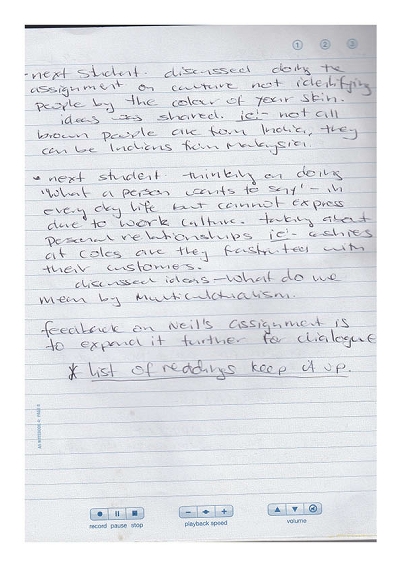 1 2 3
- next student. discussed doing the
assignment on culture not identifying
people by the colour of your skin.
ideas was shared. ie:- not all
brown people are from India, they
can be Indians from Malaysia.
• next student thinking on doing
'What a person wants to say' - in
every day life but cannot express
due to work culture. talking about
personal relationships ie:- cashiers
at Coles are they frustrated with
their customers.
discussed ideas - what do we
mean by Multiculturalism.
feedback on Neil's assignment is
to expand it further for dialogue
* list of readings keep it up.
record pause stop
playback speed
volume